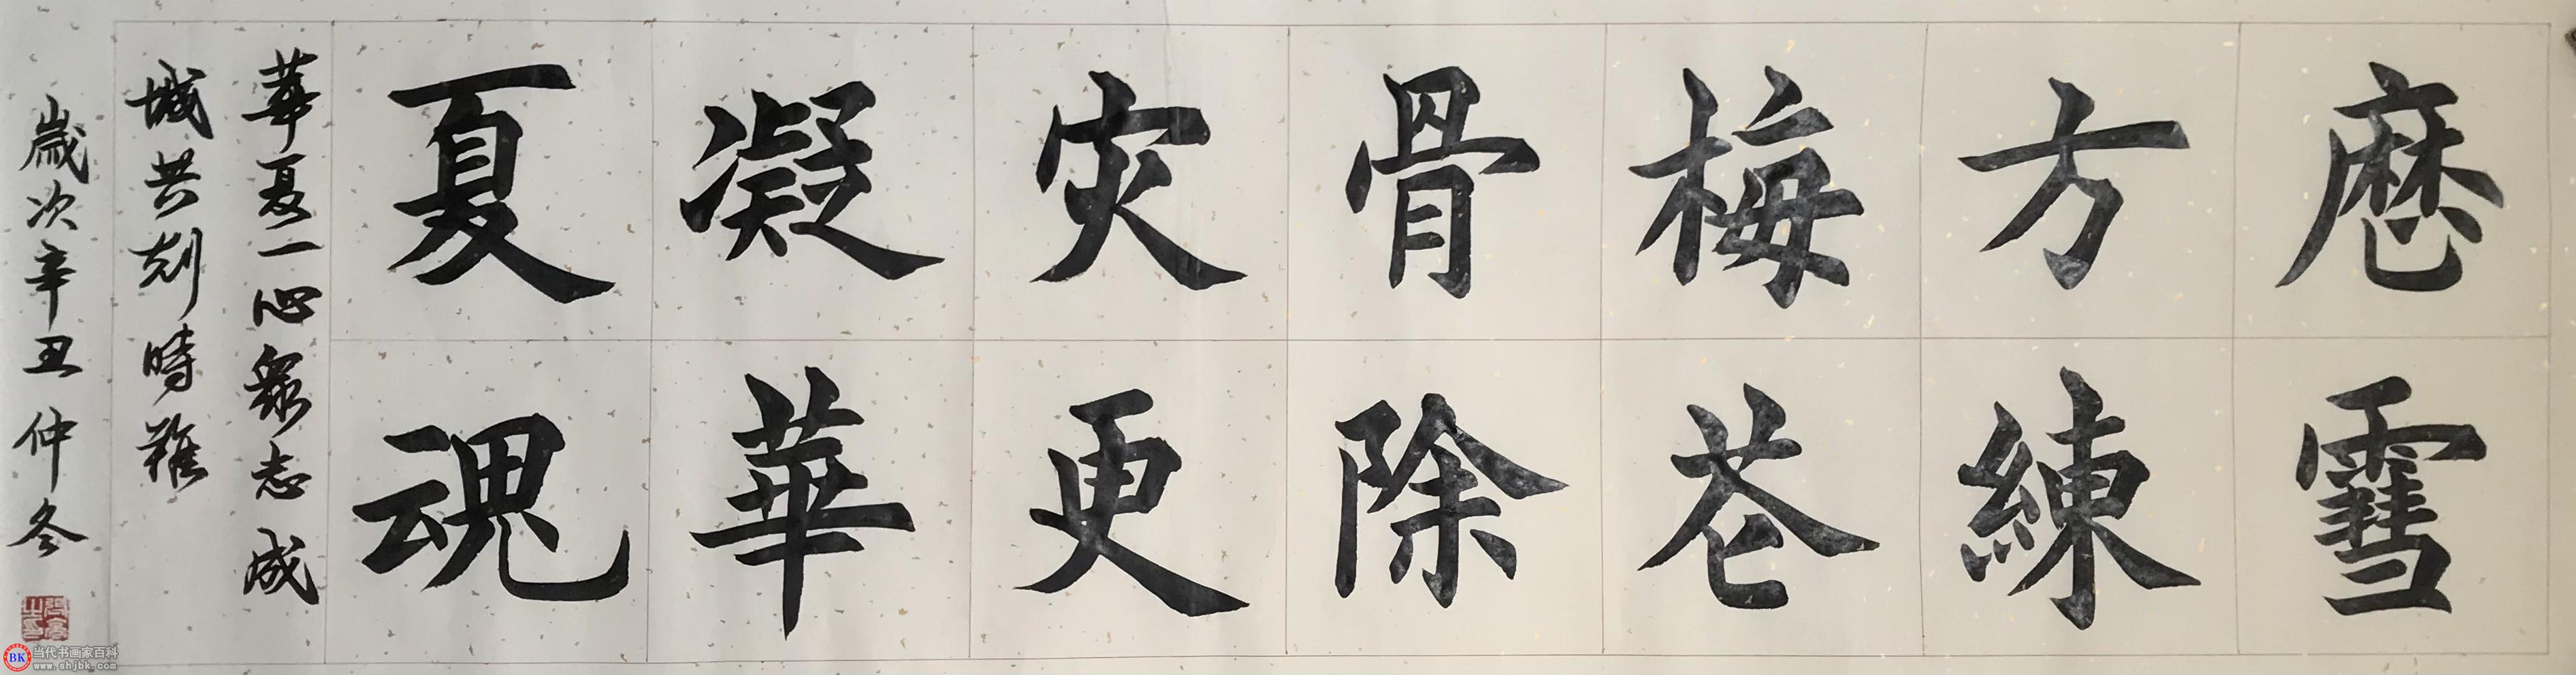 歷雪
方練
梅花
骨除
灾更
凝華
夏魂
華夏一心眾志成
城共剋時難
歲次辛丑仲冬
BK
当代书画家百科
www.shjbk.com